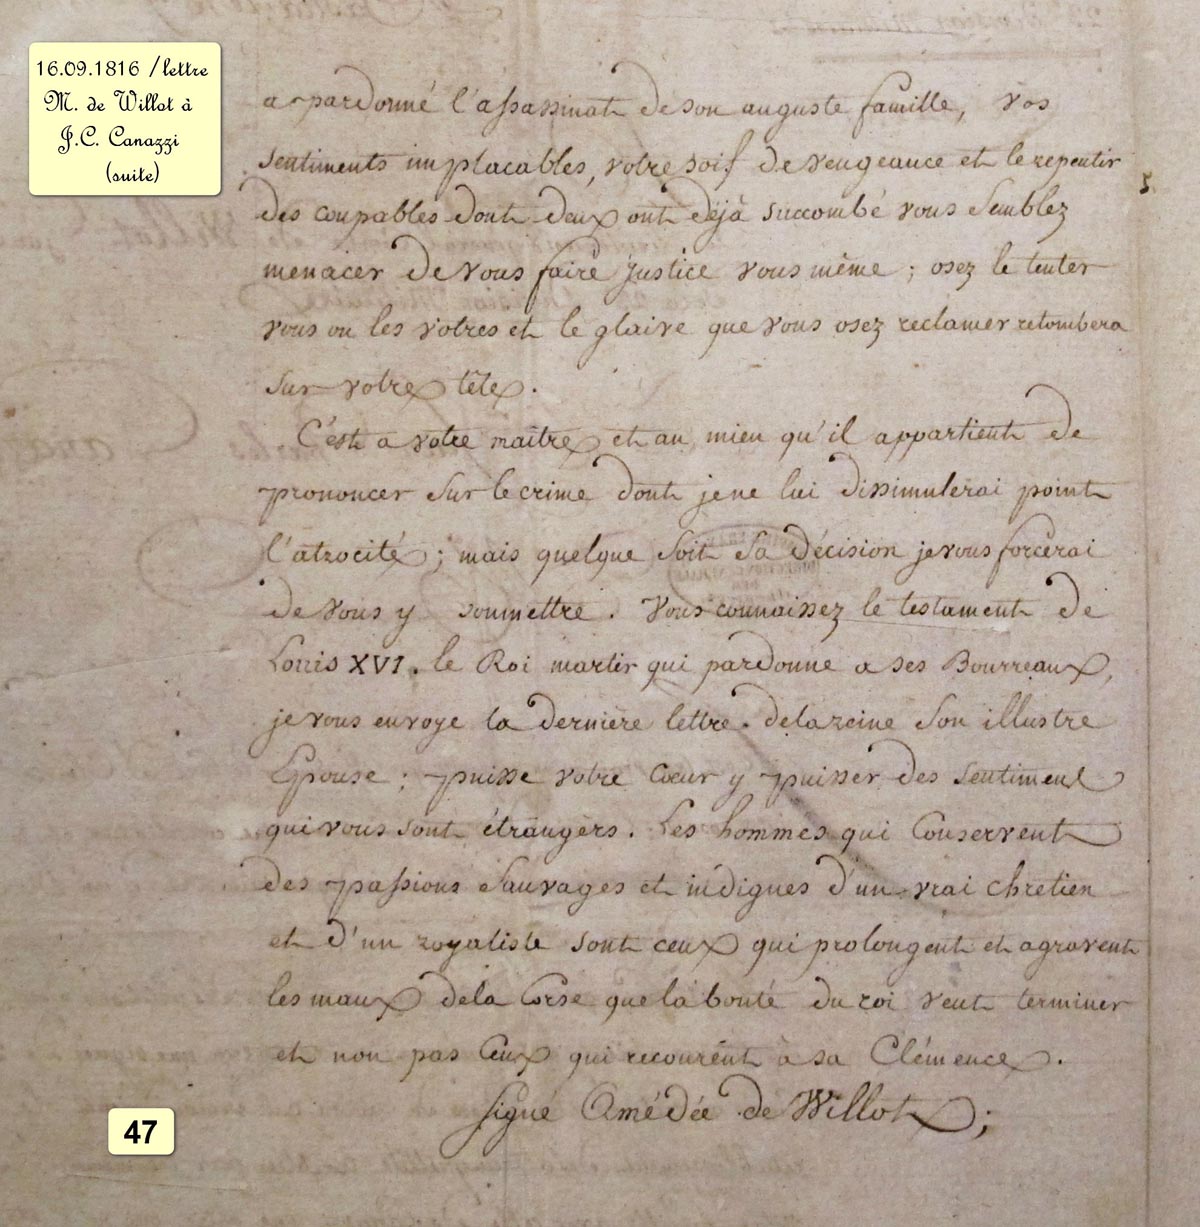 16.09.1816 /lettre
M. de Willot à
J.C. Canazzi
(suite)
a pardonné l'assassinat de son auguste famille, vos
sentiments implacables, votre soif de vengeance et le repentir
des coupables dont deux ont déjà succombé vous semblez
menacer de vous faire justice vous même ; osez le tenter
vous ou les votres et le glaive que vous osez reclamer retombera
sur votre tête.
C'est a votre maître et au mien qu'il appartient de
prononcer sur le crime dont je ne lui dissimulerai point
l'atrocité ; mais quelque soit sa décision je vous forcerai
de vous y soumettre. Vous connaissez le testament de
Louis XVI. le Roi martir qui pardonne a ses Bourreaux,
je vous envoye la dernière lettre de la reine son illustre
Epouse ; puisse votre Cœur y puisser des sentiment
qui vous sont étrangèrs. Les hommes qui Conservent
des passions sauvages et indignes d'un vrai chretien
et d'un royaliste sont ceux qui prolongent et agravent
les maux de la Corse que la bonté du roi veut terminer
et non pas Ceux qui recourent à sa Clémence.
signé Amédée de Willot ;
47